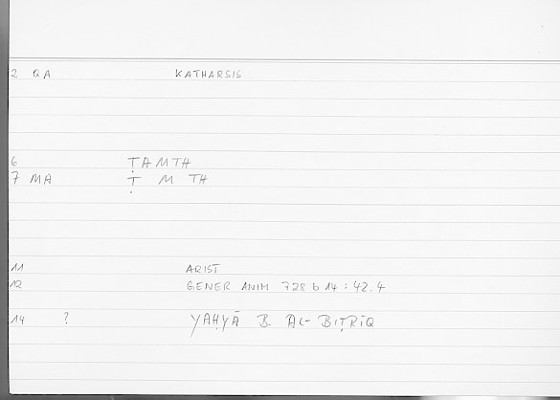 2 QA KATHARSIS
6 ṬAMTH
7 MA Ṭ M TH
11 ARIST
12 GENER ANIM 728 b 14 : 42.4
14 ? YAḤYĀ B. AL-BIṬRĪQ